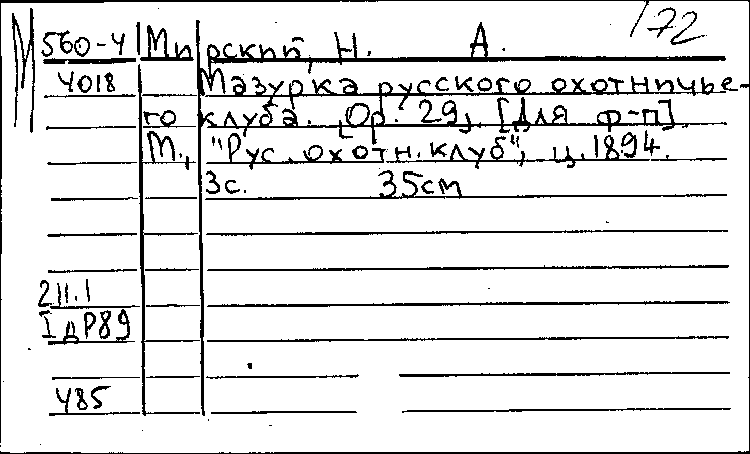 М 172
560-4 Мирский, Н. А.
4018 Мазурка русского охотничье-
го клуба. Ор. 29, [Для ф-п]
М., "Рус. охотн. клуб", ц. 1894.
3с. 35см
211.1
IдР89
485